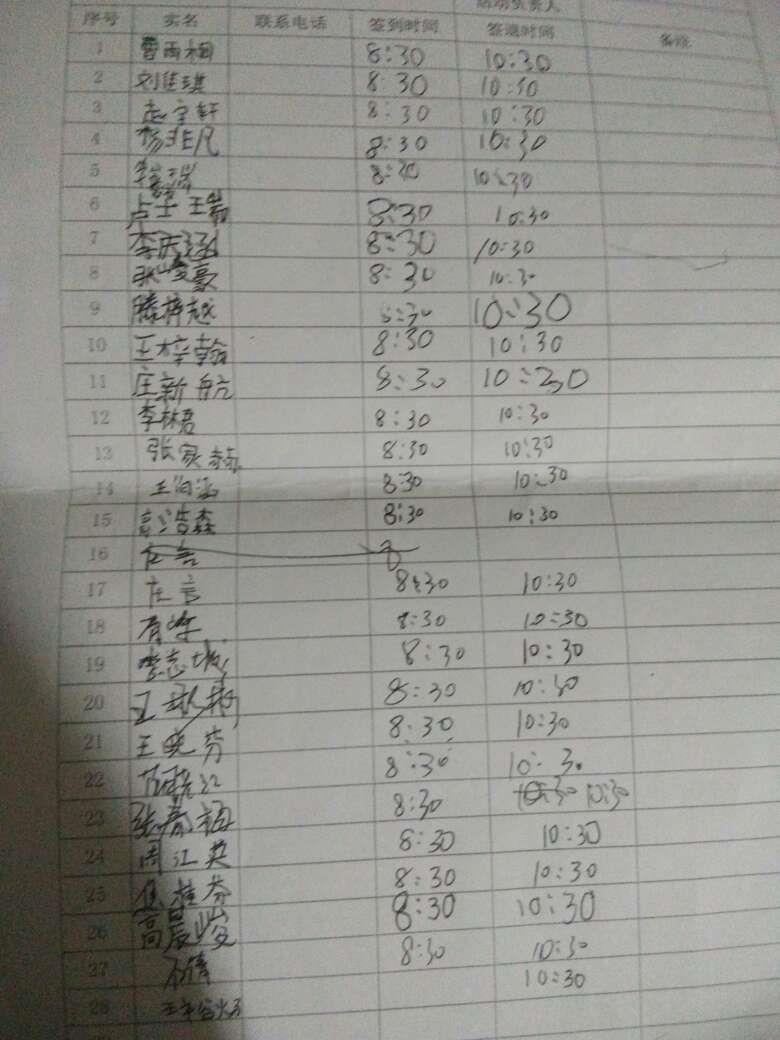 活动负责人
序号 实名 联系电话 签到时间 签退时间 备注
1 曹雨桐 8:30 10:30
2 刘佳琪 8:30 10:30
3 赵宇轩 8:30 10:30
4 杨非凡 8:30 10:30
5 8:30 10:30
6 8:30 10:30
7 李庆涵 8:30 10:30
8 张峻豪 8:30 10:30
9 滕梓越 8:30 10:30
10 王梓翰 8:30 10:30
11 庄新航 8:30 10:30
12 李林君 8:30 10:30
13 张家赫 8:30 10:30
14 王洵涵 8:30 10:30
15 彭浩森 8:30 10:30
16 左言 8
17 左言 8:30 10:30
18 8:30 10:30
19 8:30 10:30
20 8:30 10:30
21 王晓芬 8:30 10:30
22 8:30 10:30
23 张春梅 8:30 10:30 10:30
24 周江英 8:30 10:30
25 8:30 10:30
26 高晨峻 8:30 10:30
27 8:30 10:30
28 10:30